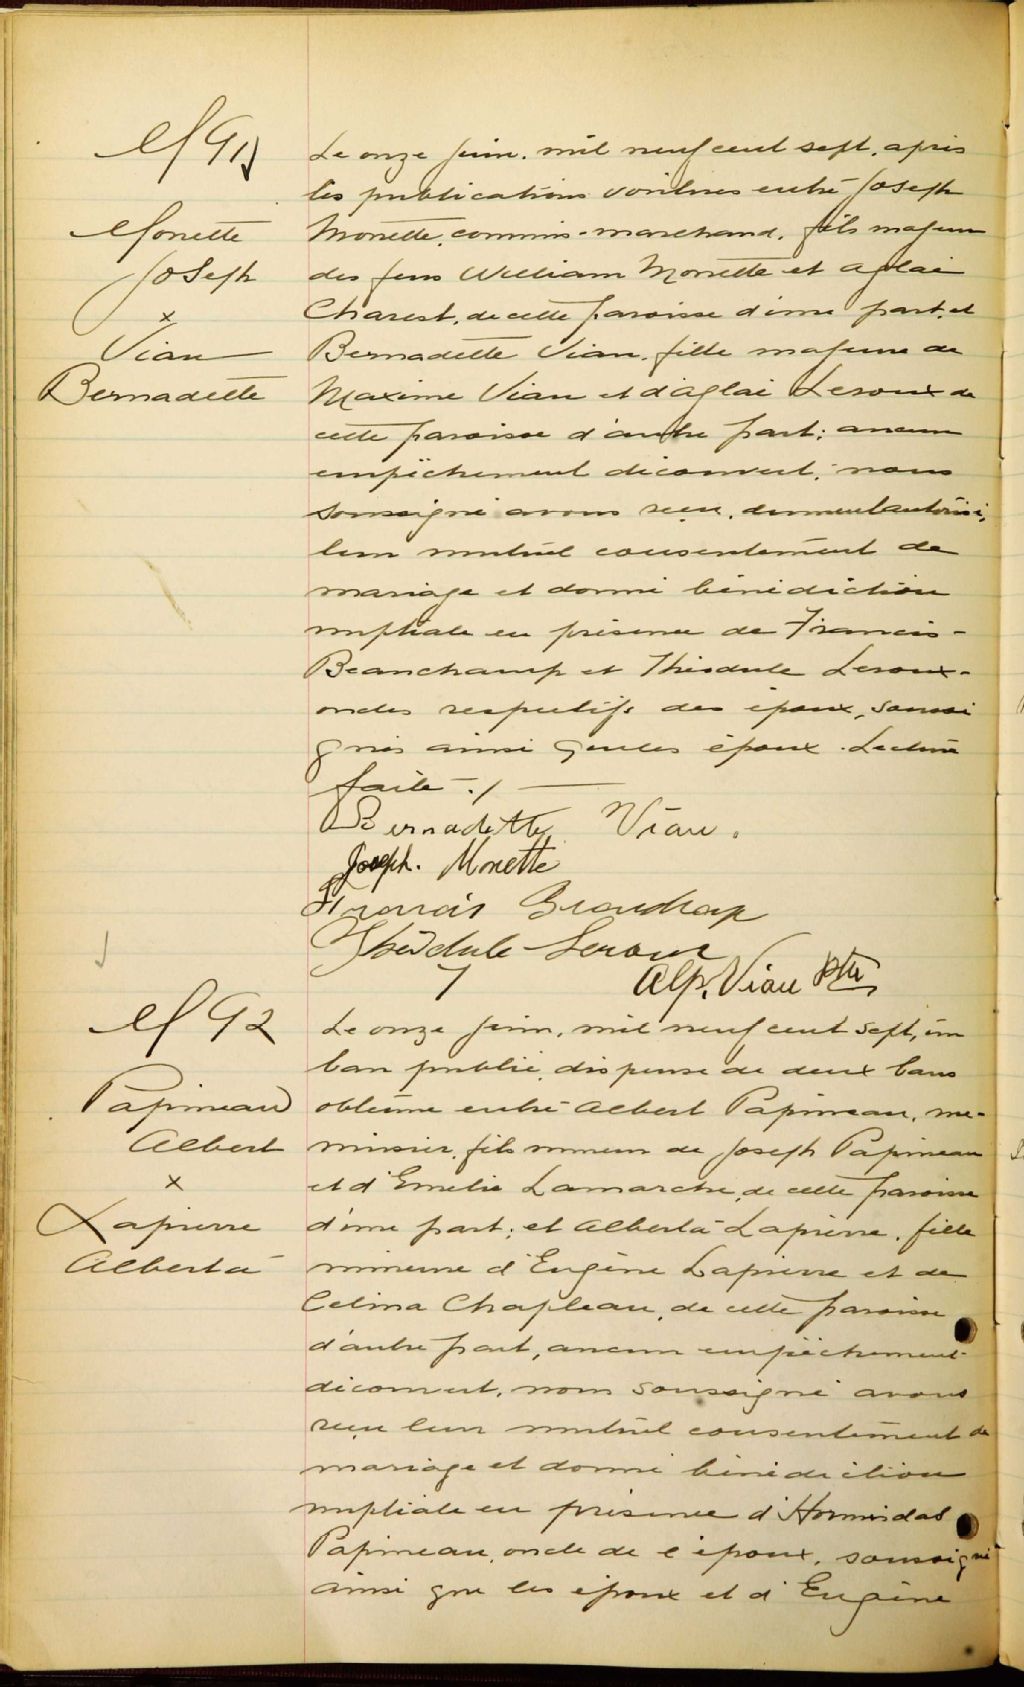 M 91
Monette
Joseph
x
Viau
Bernadette
Le onze juin, mil neuf cent sept, après
les publications voulues entre Joseph
Monette, commis-marchand, fils majeur
des feus William Monette et Aglaé
Charest, de cette paroisse d'une part, et
Bernadette Viau, fille majeure de
Maxime Viau et d'Aglaé Leroux de
cette paroisse d'autre part; aucun
empêchement découvert, nous
soussigné avons reçu, dument autorisé,
leur mutuel consentement de
mariage et donné bénédiction
nuptiale en présence de Francis-
Beauchamp et Théodule Leroux-
oncles respectifs des époux, soussi
gnés ainsi que les époux. Lecture
faite ./.
Bernadette Viau.
Joseph. Monette
Francois Beauchap
Théodule Leroux
Alp. Viau Ptre
M 92
Papineau
Albert
x
Lapierre
Alberta
Le onze juin, mil neuf cent sept, un
ban publié, dispense de deux bans
obtenue entre Albert Papineau, me-
nuisier, fils mineur de Joseph Papineau
et d'Emélie Lamarche, de cette paroisse
d'une part; et Alberta Lapierre, fille
mineure d'Eugène Lapierre et de
Celina Chapleau, de cette paroisse
d'autre part, aucun empêchement
découvert, nous soussigné avons
reçu leur mutuel consentement de
mariage et donné bénédiction
nuptiale en présence d'Hormidas
Papineau, oncle de l'époux, soussigné
ainsi que les époux et d'Eugène